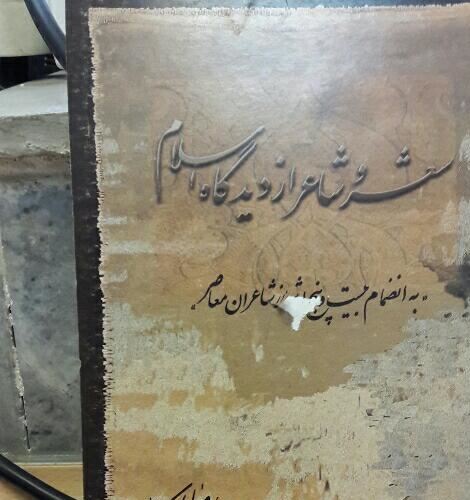 شعر و شاعر از دیدگاه اسلام
«به انضمام بیست و پنج از شاعران معاصر»